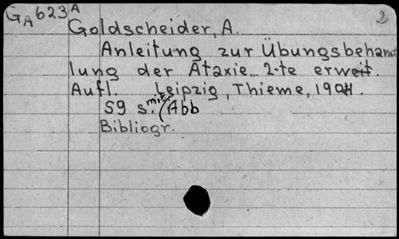 GA623A 2
Goldscheider, A.
Anleitung zur Übungsbehand
lung der Ataxie... 2-te erweit.
Aufl. Leipzig, Thieme, 1904.
59 s. mit Abb
Bibliogr.